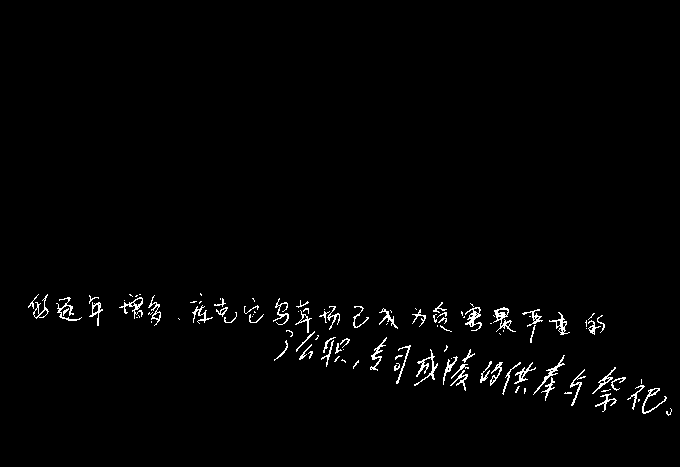 的逐年增多、库克它乌草场已成为危害最严重的
了公职,专司成陵的供奉与祭祀。